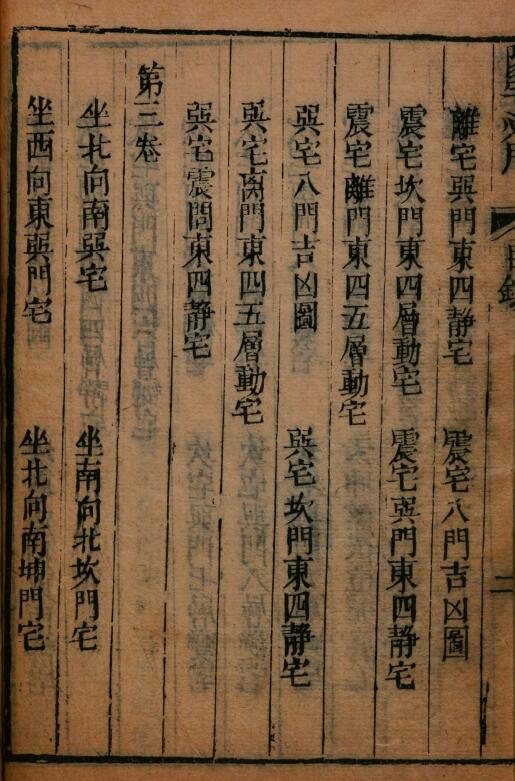 離宅巽門東四靜宅　震宅八門吉凶圖
震宅坎門東四層動宅　震宅巽門東四靜宅
震宅離門東四五層動宅
巽宅八門吉凶圖　巽宅坎門東四靜宅
巽宅离門東四五層動宅
巽宅震門東四靜宅
第三卷
坐北向南巽宅　坐南向北坎門宅
坐西向東巽門宅　坐北向南坤門宅
目錄
二